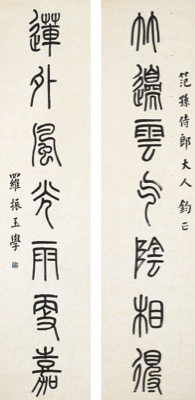 竹邊雲陰相得
范孫侍郎大人鈞正
蓮外風光雨更嘉
羅振玉學